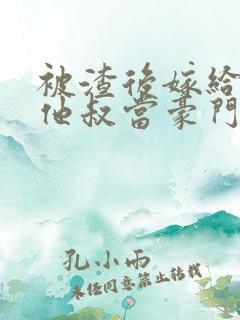 被渣後嫁給
他叔當豪門
孔小雨
未經同意禁止轉載